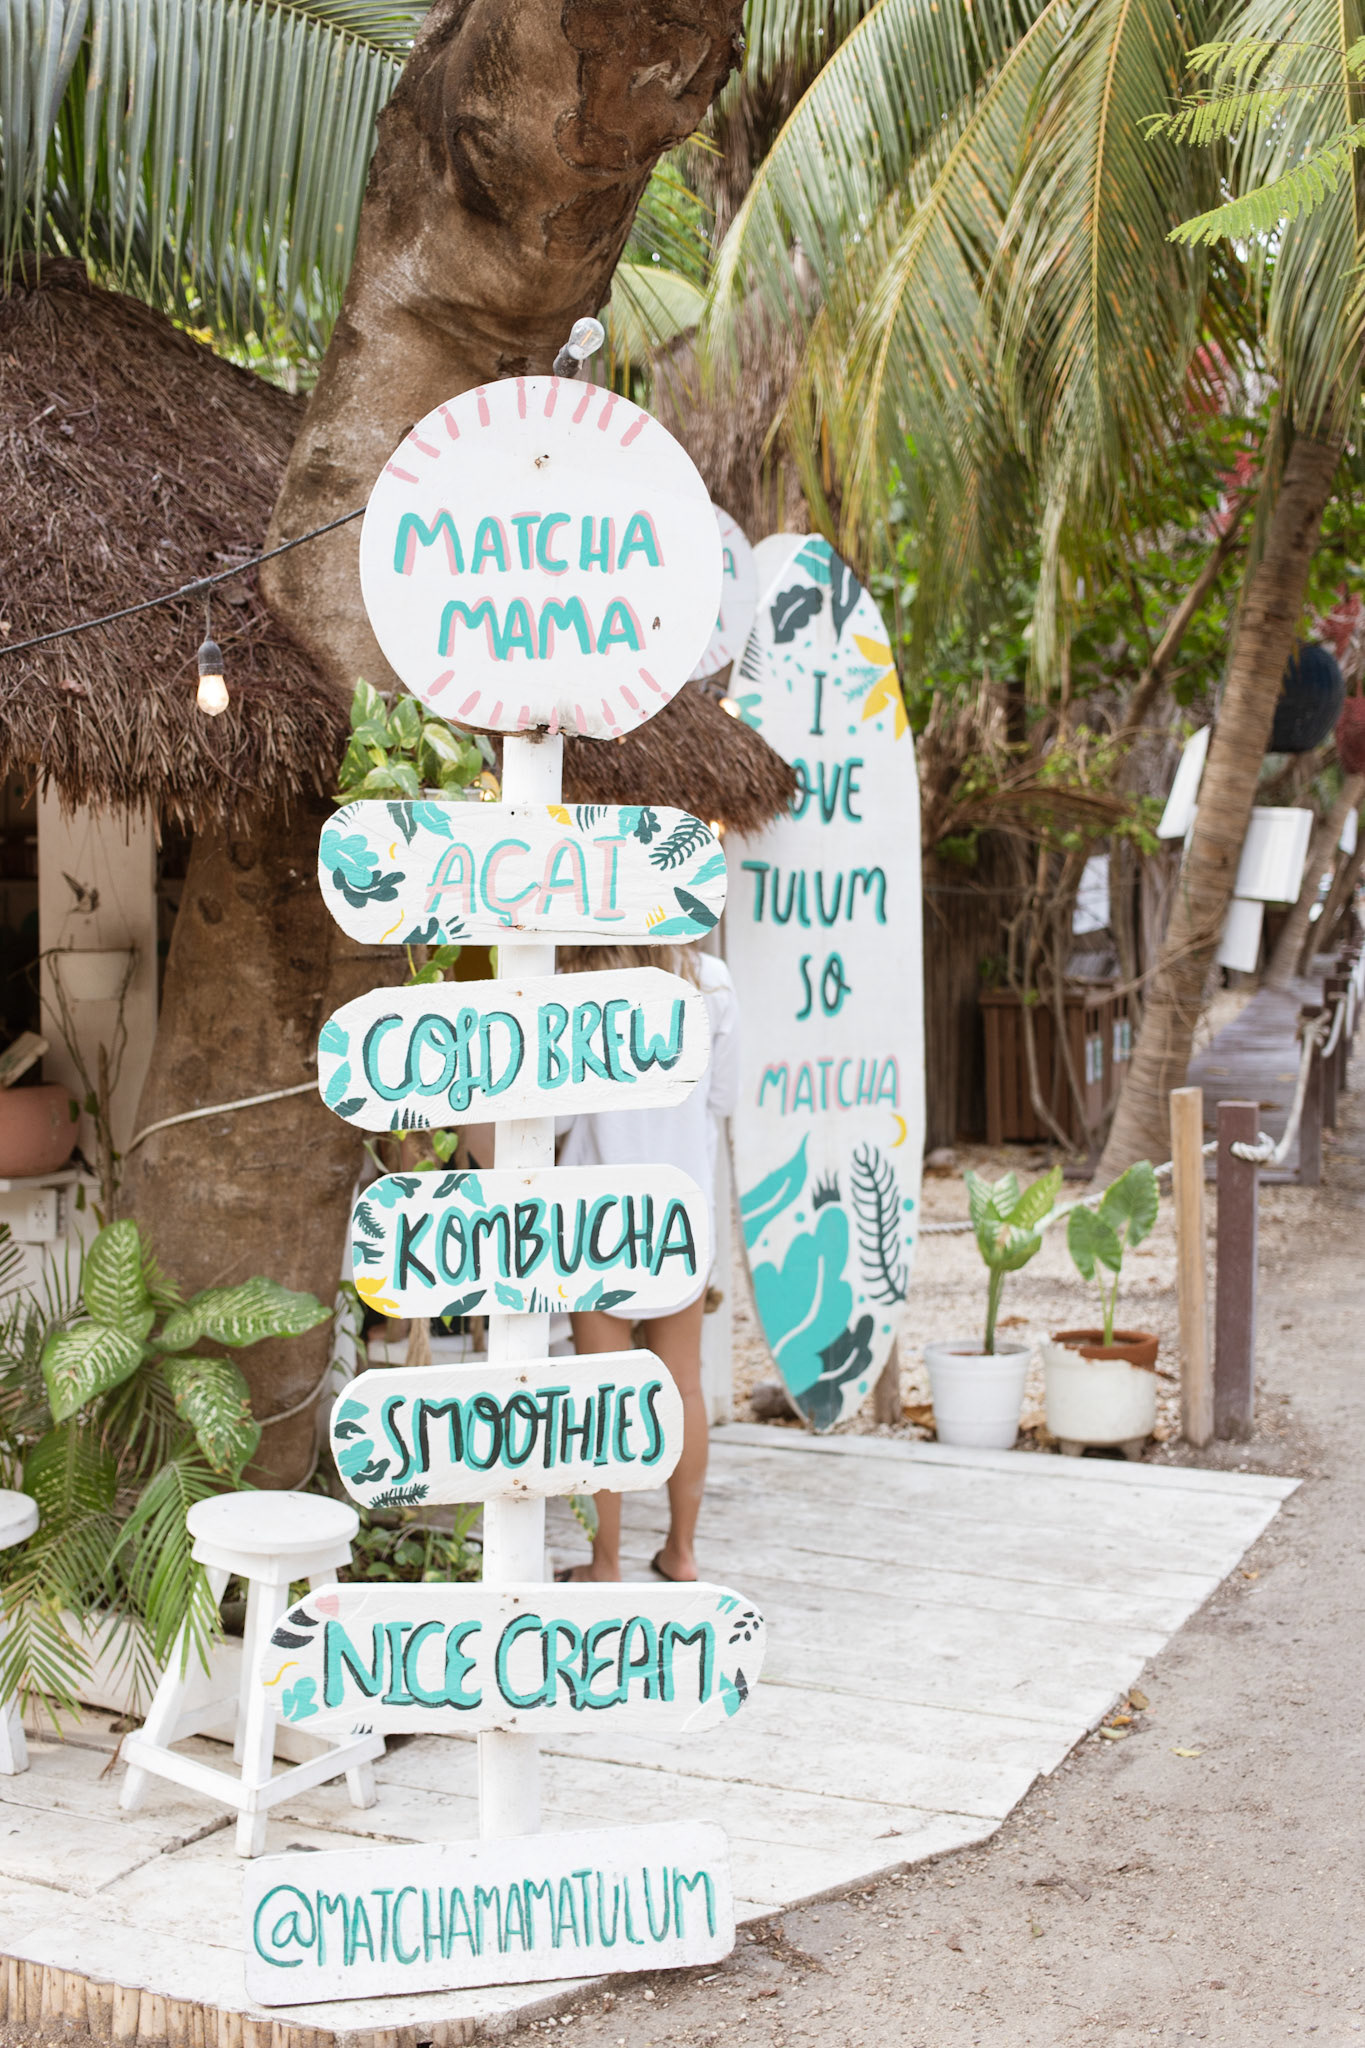 MATCHA
MAMA
AÇAI
COLD BREW
KOMBUCHA
SMOOTHIES
NICE CREAM
@MATCHAMAMATULUM
I
LOVE
TULUM
SO
MATCHA